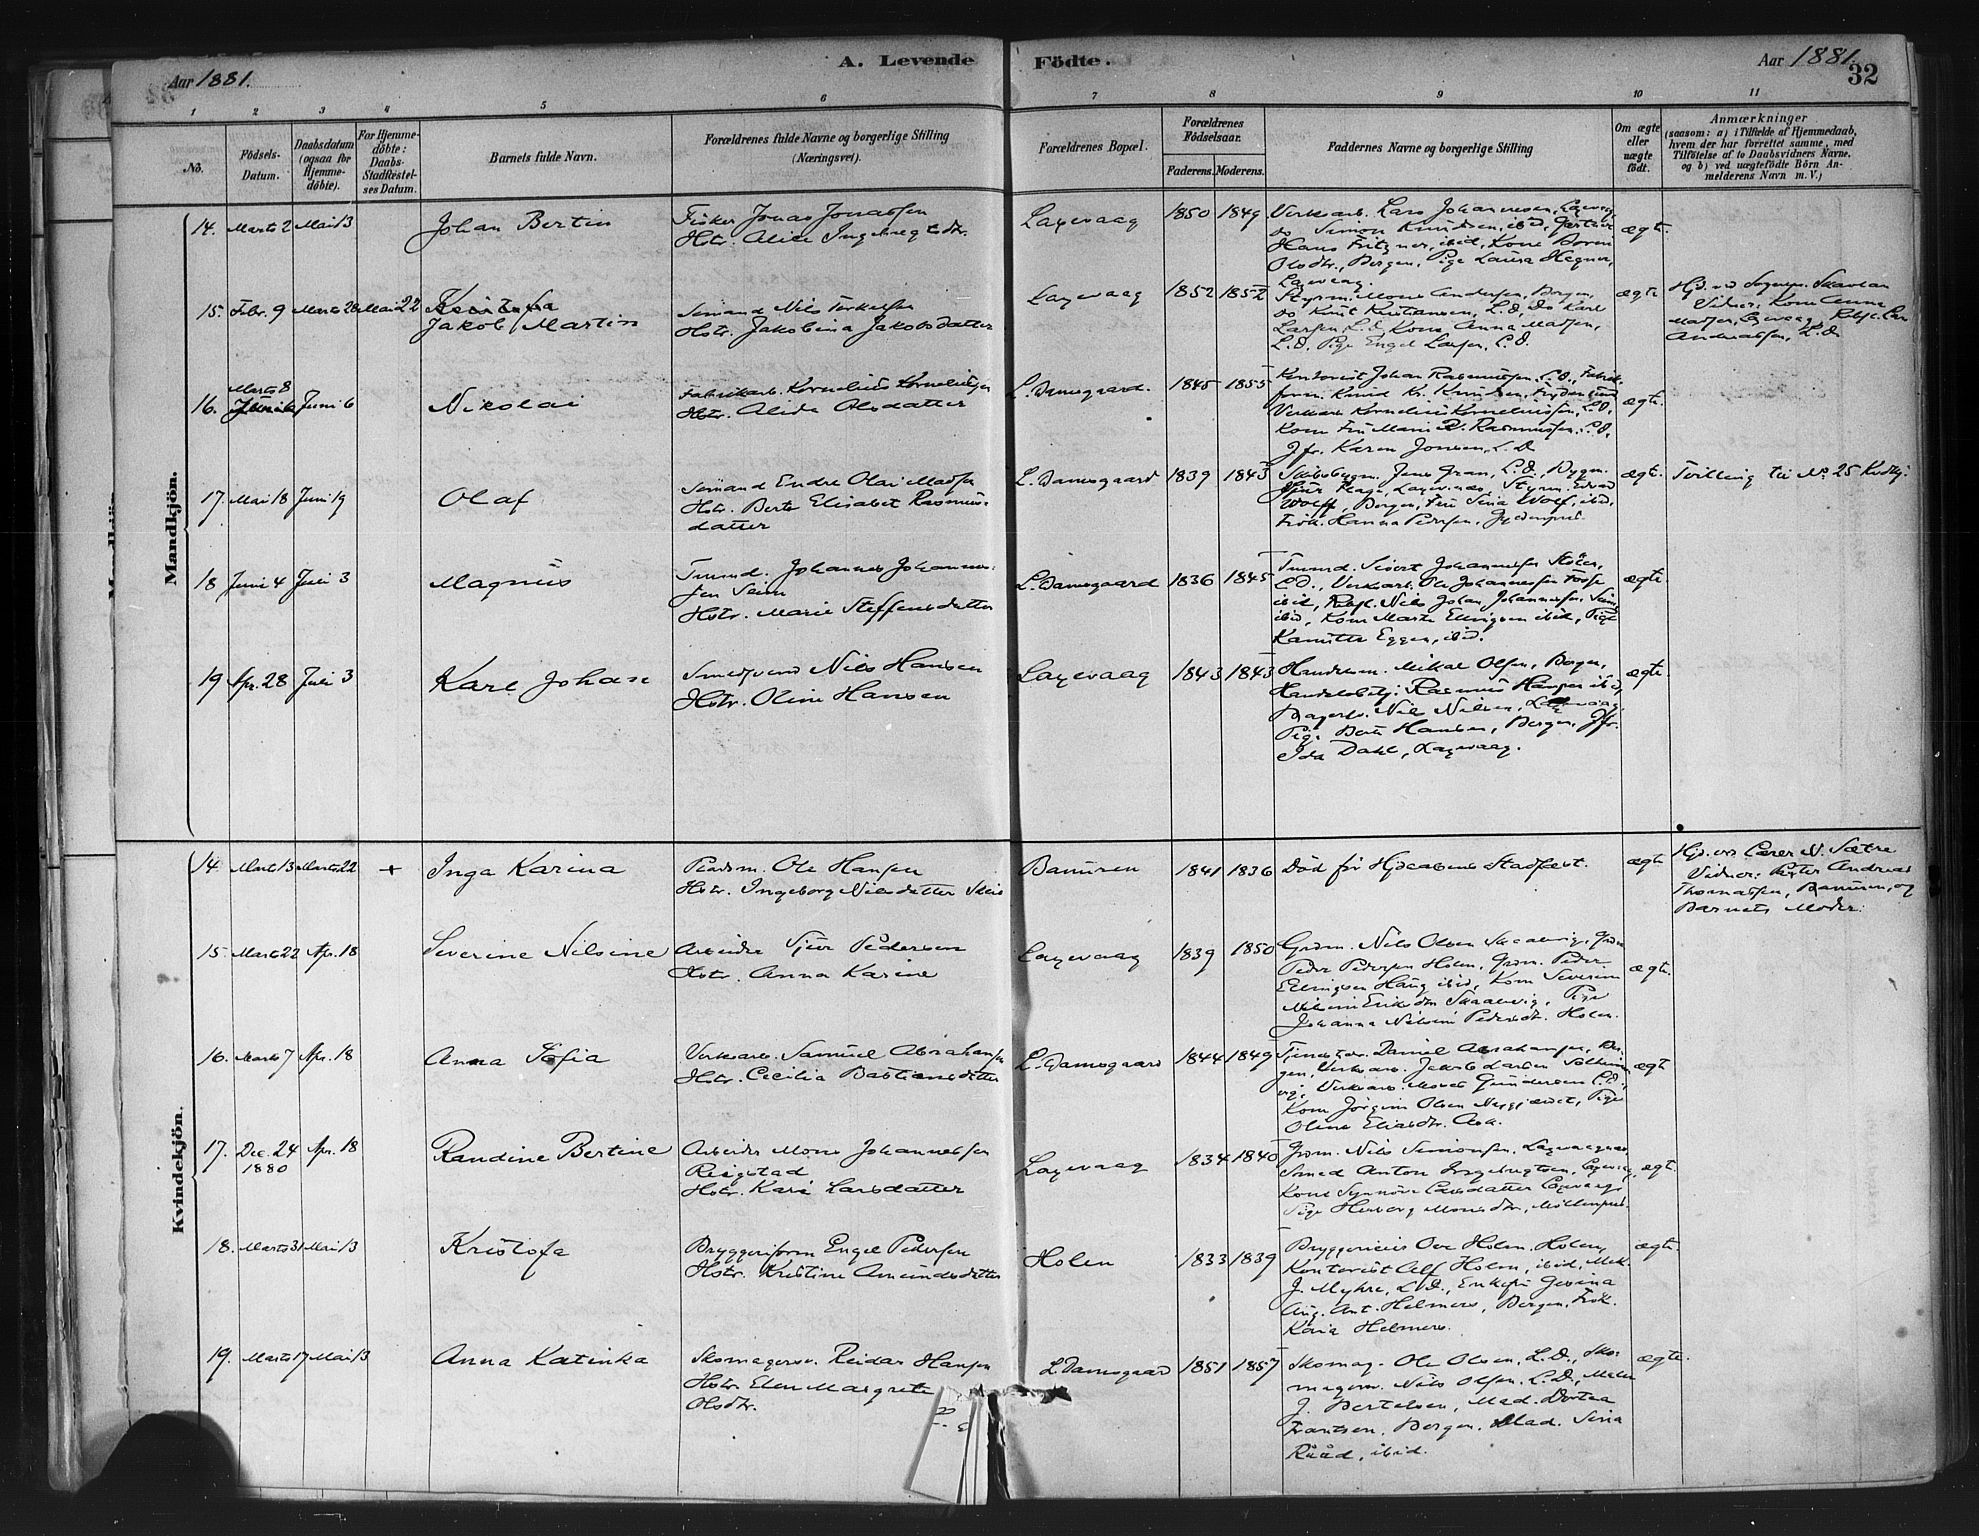 Aar 1881.
A. Levende Födte.
Aar 1881.
32
1 2 3 4 5 6 7 8 9 10 11
No.
Födsels-Datum.
Daabsdatum (ogsaa for Hjemme-döbte).
For Hjemme-döbte: Daabs-Stadfæstel-ses Datum.
Barnets fulde Navn.
Forældrenes fulde Navne og borgerlige Stilling (Næringsvei).
Forældrenes Bopæl.
Forældrenes Födselsaar.
Faderens. Moderens.
Faddernes Navne og borgerlige Stilling
Om ægte eller uægte födt.
Anmærkninger
(saasom: a) i Tilfælde af Hjemmedaab,
hvem der har forrettet samme, med
Tilföielse af to Daabsvidners Navne,
og b) ved uægtefödte Börn An-
melderens Navn m. V.)
Mandkjön.
14. Marts 2 Mai 13 Johan Bertin
Fisker Jonas Jonassen
Hstr. Alice Ingebregtsdtr.
Laxevaag 1850 1849
Verksarb. Lars Johannesen, Laxevaag,
do Simon Knudsen, ibid, Gartner
Hans Fritzner, ibid, Kone Boren
Olsdtr., Bergen, Pige Laura Hegner,
Laxevaag.
ægte.
15. Febr. 9 Marts 28 Mai 22
Kristofa
Jakob Martin
Sømand Nils Terkelsen
Hstr. Jakobina Jakobsdatter
Laxevaag 1852 1852
Styrm. Mons Andersen, Bergen,
do Knut Kristiansen, L.D. Do Karl
Larsen, L.D. Kone Anna Madsen,
L.D. Pige Engel Larsen, L.D.
ægte
Hjd. ved Sognepr. Skavlan
Vidner: Kone Anna
Madsen, Laxevaag
Andreassen, L.D.
16. Marts 8 Juni 6 Nikolai
Fabrikarb. Kornelius Korneliussen
Hstr. Alida Olsdatter
L. Damsgaard. 1845 1855
Kontorist Johan Rasmussen, L.D., Fabrik-
form. Knud Kr. Knudsen,
Verksarb. Kornelius Korneliussen, L.D.
Kone Fru Marie R. Rasmussen, L.D.
Jfr. Karen Jonsen, L.D
ægte.
17. Mai 18 Juni 19 Olaf
Sømand Endre Olai Madsen
Hstr. Berte Elisabet Rasmus-
datter
L. Damsgaard 1839 1843
Skibsbygm. Jens Gran, L.D. Bygm.
Wolff, Bergen, Fru Sina Wolf, ibid.
Frøk. Hanna Petersen,
ægte.
Tvilling til No 25 Kvdkj
18 Juni 4 Juli 3 Magnus
Tmmd. Johannes Johannes-
sen Seim
Hstr. Marie Steffensdatter
L. Damsgaard 1836 1845
Tmmd. Sivert Johannessen
L.D., Verksarb. Ole Johannessen Fosse
ibid, Rebsl. Nils Johan Johannesen Seim,
ibid, Kone Marte Ellingsen ibid, Pige
Kamilla Eggen, ibid.
ægte.
19 Apr. 28 Juli 3 Karl Johan
Smedsvend Nils Hansen
Hstr. Oline Hansen
Laxevaag 1843 1843
Handelsm. Mikal Olsen, Bergen,
Handelsbetj. Rasmus Hansen ibid,
Bagersv. Nils Nilsen, Laxevaag,
Pige Berte Hansen, Bergen, Jfr.
Ida Dahl, Laxevaag.
ægte.
Kvindekjön.
14 Marts 13 Marts 22 + Inga Karina
Pladsm. Ole Hansen
Hstr. Ingeborg Nilsdatter
Banuren 1841 1836
Død før Hjdaabens Stadfæst.
ægte
Hjd. ved Lærer N. Sætre
Vidner: Peter Andreas
Thomassen, Banuren, og
Barnets Moder.
15. Marts 22 Apr. 18 Severine Nilsine
Arbeider Sjur Pedersen
Hstr. Anna Karine
Laxevaag 1839 1850
Grdm. Nils Olsen Skaalevig, Grdm
Peder Pedersen Holen, Grdm. Peder
Ellingsen Haug ibid, Kone Severine
Nilsine Eriksdtr Skaalevig, Pige
Johanna Nilsine Pedersdtr. Holen.
ægte.
16. Marts 7 Apr. 18 Anna Sofia
Verksarb. Samuel Abrahamsen
Hstr. Cecilia Bastiansdatter
L. Damsgaard 1844 1849
Daniel Abrahamsen, Ber-
gen, Verksarb. Jakob Larsen
Verksarb. Mons Gundersen L.D.,
Kone Jørgine Olsen Nygjærdet, Pige
Oline Eliasdtr. Ask.
ægte
17. Dec. 24 1880 Apr. 18 Randine Bertine
Arbeider Mons Johannessen
Reigstad
Hstr. Kari Larsdatter
Laxevaag 1834 1840
Grdm. Nils Simonsen, Laxevaagnes,
Smed Anton Ingebregtsen, Laxevaag,
Kone Synnøve Larsdatter Laxevaag
Pige Herborg Monsdtr., Møllenpris.
ægte.
18. Marts 31 Mai 13 Kristofa
Bryggeriform Engel Pedersen
Hstr. Kristine Amundsdatter
Holen 1833 1839
Bryggerieier Ole Holen, Holen,
Kontorist Alf Holen, ibid, Mek.
J. Myhre, L.D., Enkefru Gesina
Aug. Ant. Helmers, Bergen, Frøk.
Kaia Helmers.
ægte.
19. Marts 17 Mai 13 Anna Katinka
Skomagersv. Reidar Hansen
Hstr. Elen Margrete
Olsdtr.
L. Damsgaard 1851 1857
Skomag. Ole Olsen, L.D., Sko-
magersv. Nils Olsen, L.D., Maler
J. Bertelsen, Mad. Dortea
Frantsen, Bergen, Mad. Sina
Rååd, ibid.
ægte.